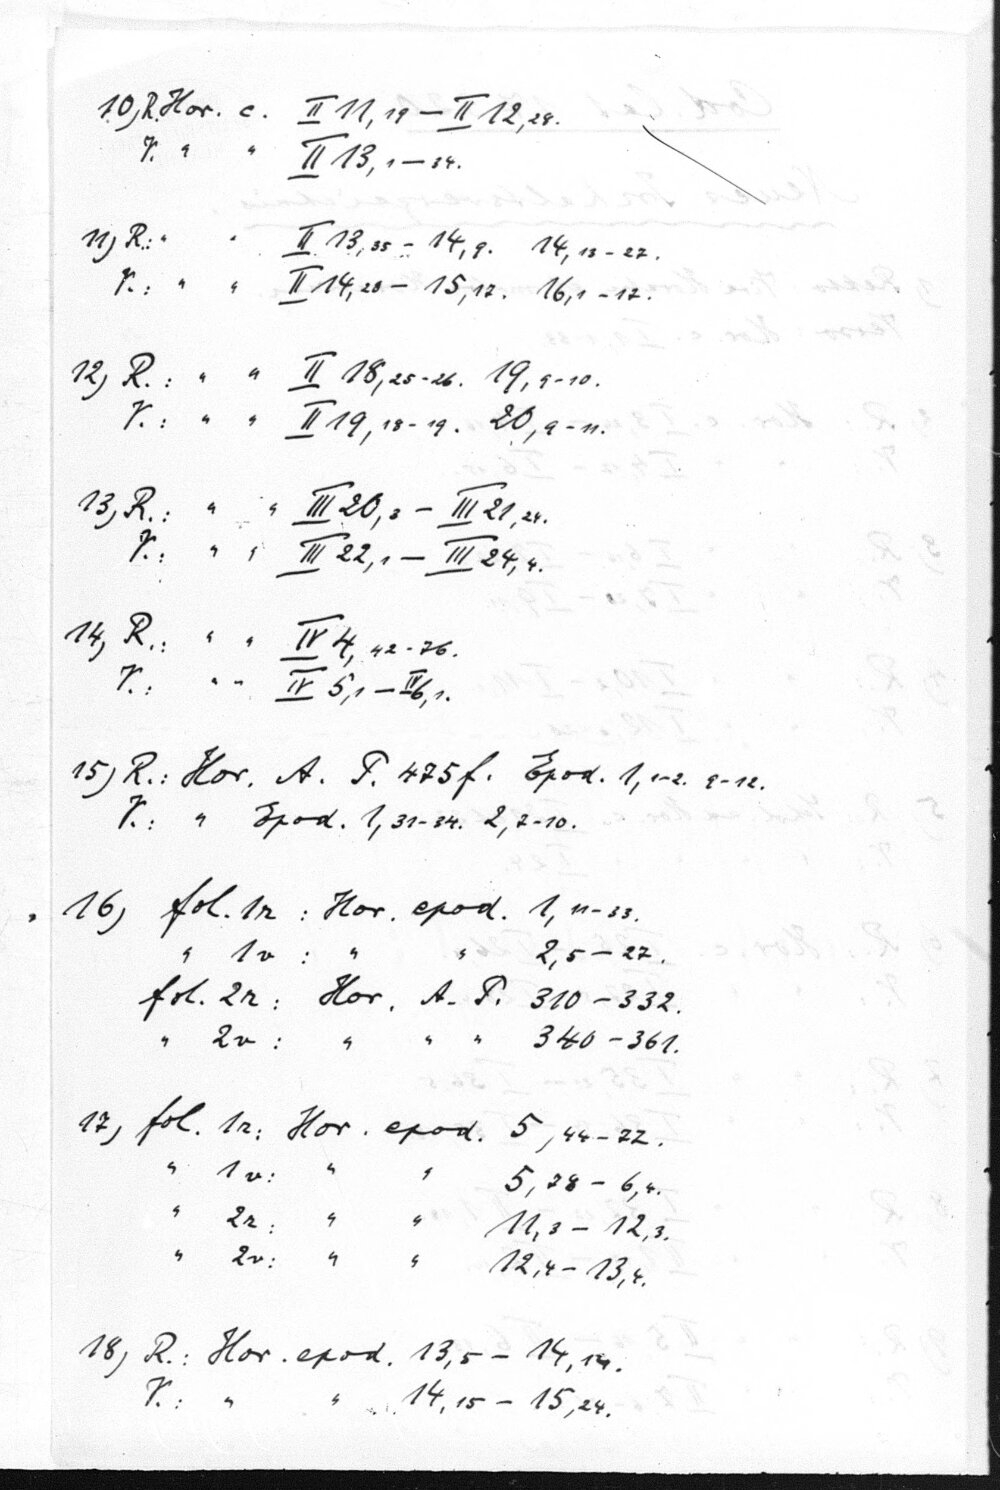 10) R. Hor. c. II 11,19 – II 12,28.
V. " " II 13,1–34.
11) R.: " " II 13,35 – 14,9. 14,13–27.
V.: " " II 14,28 – 15,17. 16,1–17.
12) R.: " " II 18,25–26. 19,9–10.
V.: " " II 19,18–19. 20,9–11.
13) R.: " " III 20,3 – III 21,24.
V.: " " III 22,1 – III 24,4.
14) R.: " " IV 4,42–76.
V.: " " IV 5,1 – IV 6,1.
15) R.: Hor. A. P. 475 f. Epod. 1,1–2. 9–12.
V.: " Epod. 1,31–34. 2,7–10.
16) fol. 1r : Hor. epod. 1,11–33.
" 1v : " " 2,5–27.
fol. 2r : Hor. A. P. 310–332.
" 2v : " " " 340–361.
17) fol. 1r: Hor. epod. 5,44–77.
" 1v: " " 5,78 – 6,4.
" 2r: " " 11,3 – 12,3.
" 2v: " " 12,4 – 13,4.
18) R.: Hor. epod. 13,5 – 14,14.
V.: " " 14,15 – 15,24.